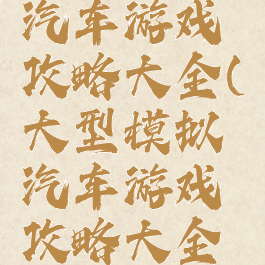 汽车游戏
攻略大全(
大型模拟
汽车游戏
攻略大全